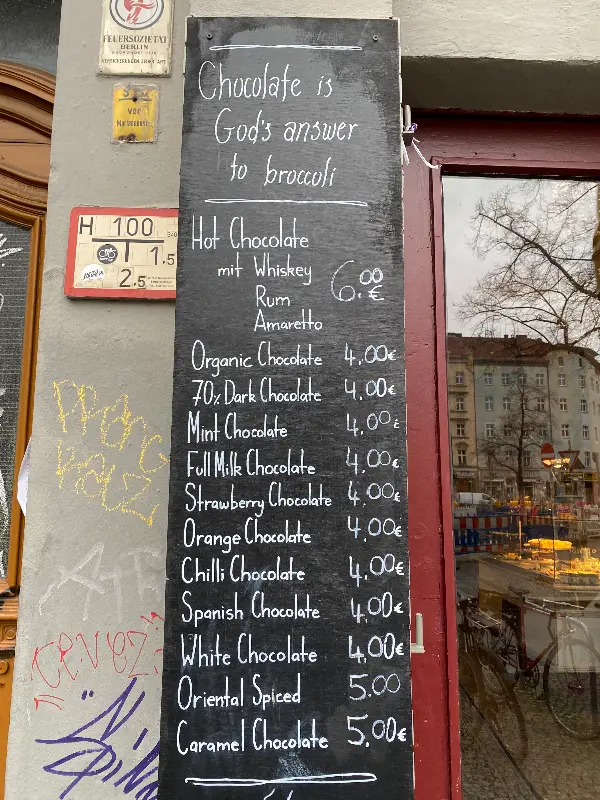 FEUERSOZIETÄT
BERLIN
Chocolate is
God's answer
to broccoli
H 100
1.5
2.5
Hot Chocolate
mit Whiskey 6.00 €
Rum
Amaretto
Organic Chocolate 4.00€
70% Dark Chocolate 4.00€
Mint Chocolate 4.00€
Full Milk Chocolate 4.00€
Strawberry Chocolate 4.00€
Orange Chocolate 4.00€
Chilli Chocolate 4.00€
Spanish Chocolate 4.00€
White Chocolate 4.00€
Oriental Spiced 5.00
Caramel Chocolate 5.00€